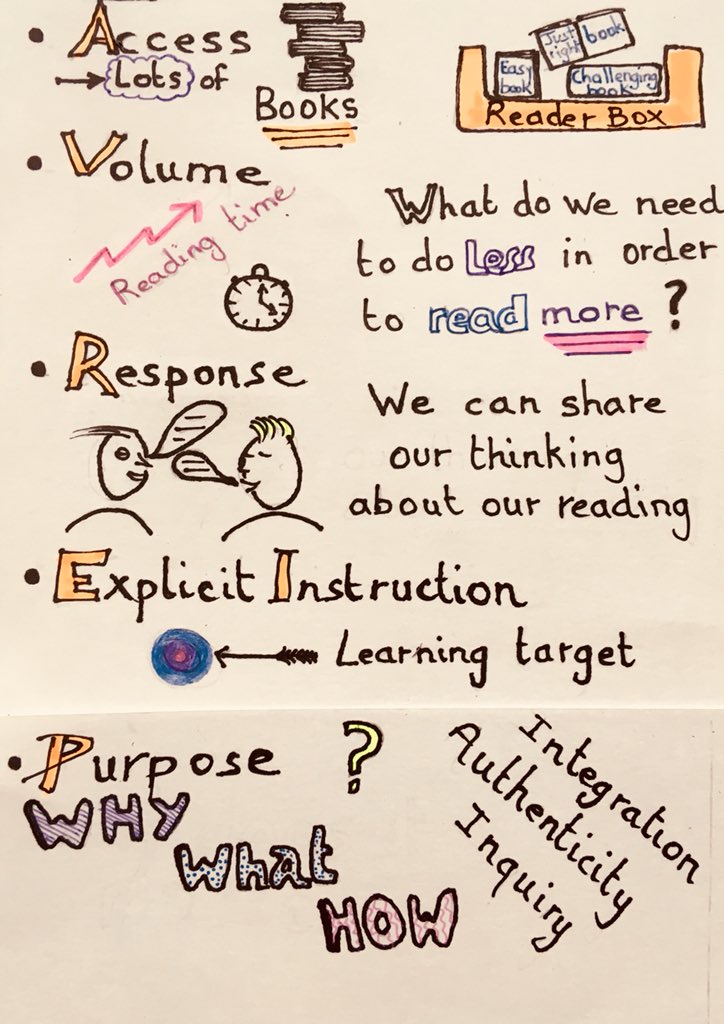 • Access
→ Lots of
Books
Easy book
Just right book
Challenging book
Reader Box
• Volume
Reading time
What do we need
to do Less in order
to read more ?
• Response
We can share
our thinking
about our reading
• Explicit Instruction
Learning target
• Purpose ?
WHY
What
HOW
Integration
Authenticity
Inquiry